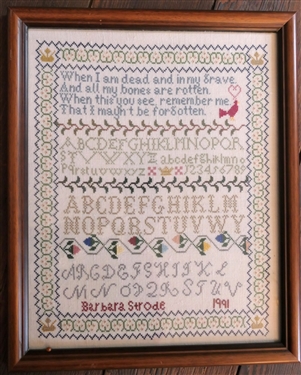 When I am dead and in my grave.
And all my bones are rotten.
When this you see, remember me
That I mayn't be forgotten.
ABCDEFGHIKLMNOPQR
STVWXYZ abcdefghiklmno
pqrstuvwxyz 123456789
ABCDEFGHIKLM
NOPQRSTUVWY
ABCDEFGHIKL
MNOPQRSTUV
Barbara Strode 1991